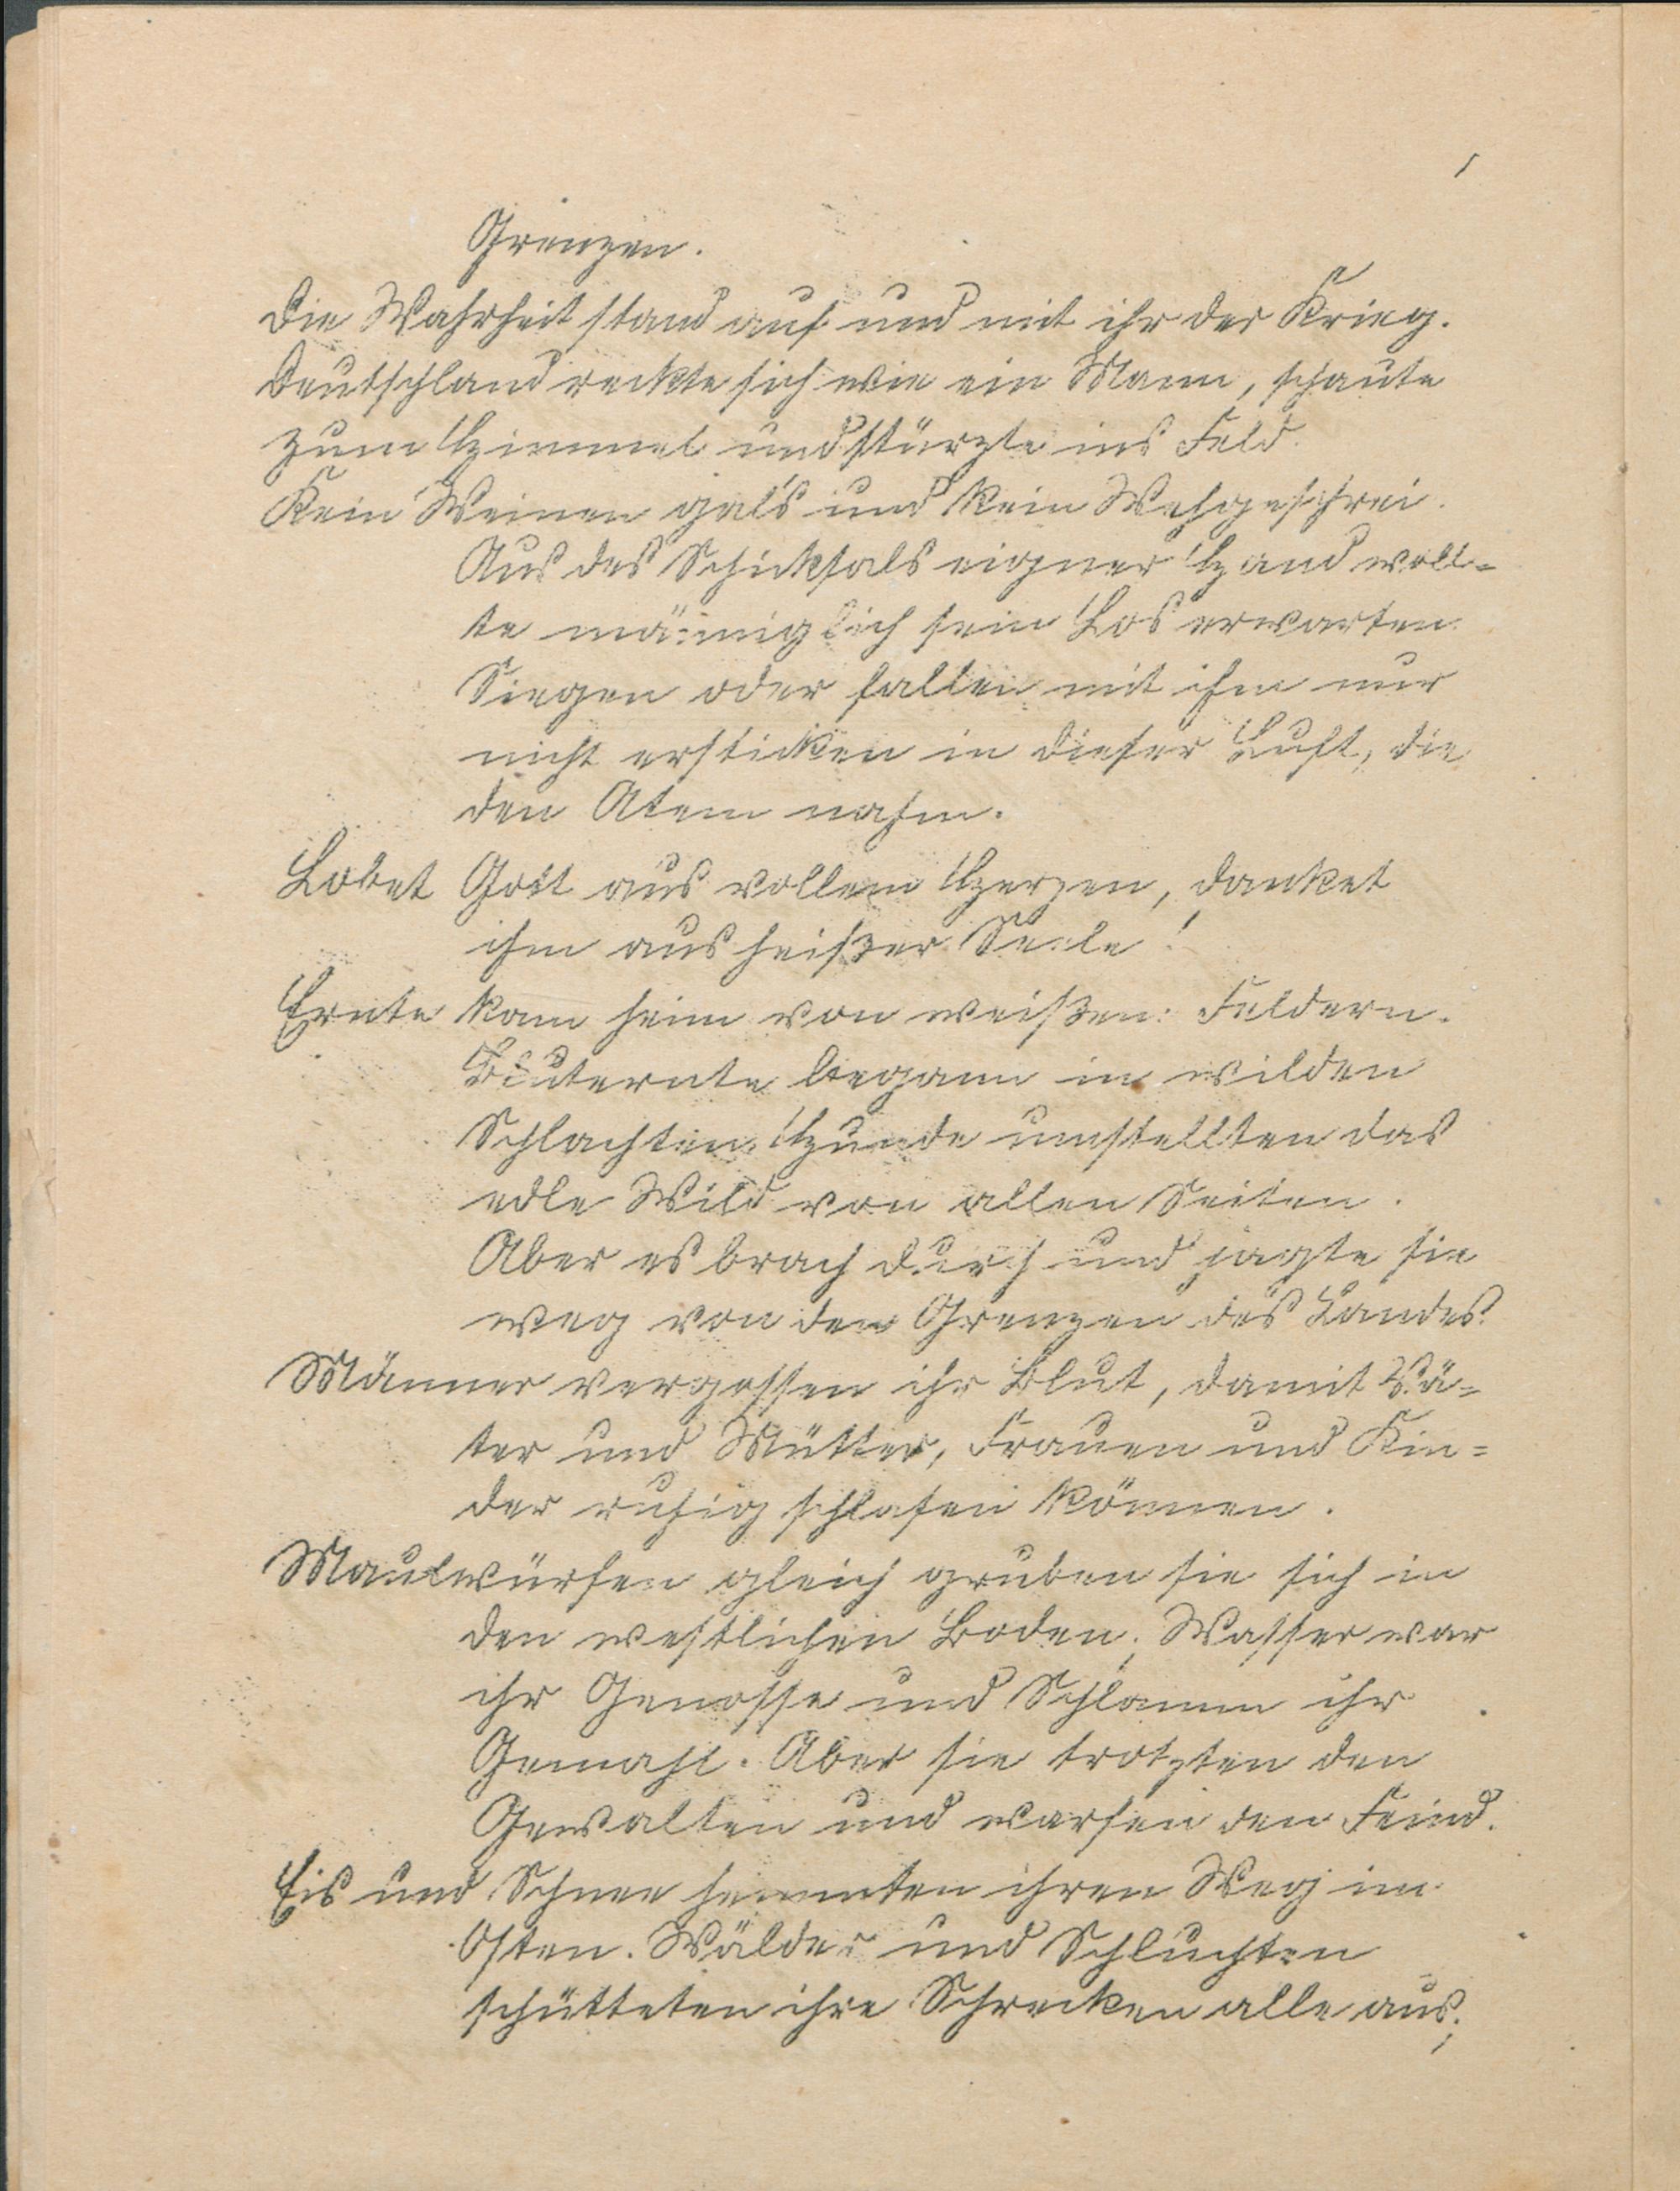 1
Grenzen.
Die Wahrheit stand auf und mit ihr der Krieg.
Deutschland reckte sich wie ein Mann, schaute
zum Himmel und stürzte ins Feld.
Kein Weinen gab's und kein Wehgeschrei.
Aus des Schicksals eigner Hand woll-
te männiglich sein Los erwarten.
Siegen oder fallen mit ihm nur
nicht ersticken in dieser Luft, die
den Atem nahm.
Lobet Gott aus vollem Herzen, danket
ihm aus heißer Seele!
Ernte kam heim von weißen Feldern.
Bluternte begann in wilden
Schlachten. Hunde umstellten das
edle Wild von allen Seiten.
Aber es brach durch und jagte sie
weg von den Grenzen des Landes.
Männer vergossen ihr Blut, damit Vä-
ter und Mütter, Frauen und Kin-
der ruhig schlafen können.
Maulwürfen gleich gruben sie sich in
den westlichen Boden; Wasser war
ihr Genosse und Schlamm ihr
Gemahl. Aber sie trotzten den
Gewalten und warfen den Feind.
Eis und Schnee hemmten ihren Weg im
Osten. Wälder und Schluchten
schütteten ihre Schrecken alle aus;